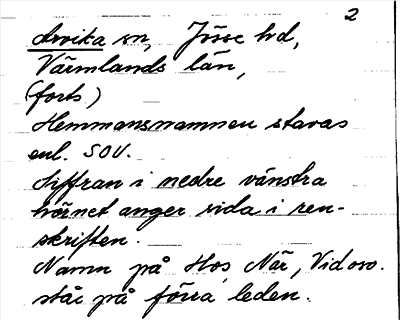 2
Arvika sn, Jösse hd,
Värmlands län,
(forts)
Hemmansnamnen stavas
enl. SOV.
Siffran i nedre vänstra
hörnet anger sida i ren-
skriften.
Namn på Hos, När, Vid osv.
står på förra leden.